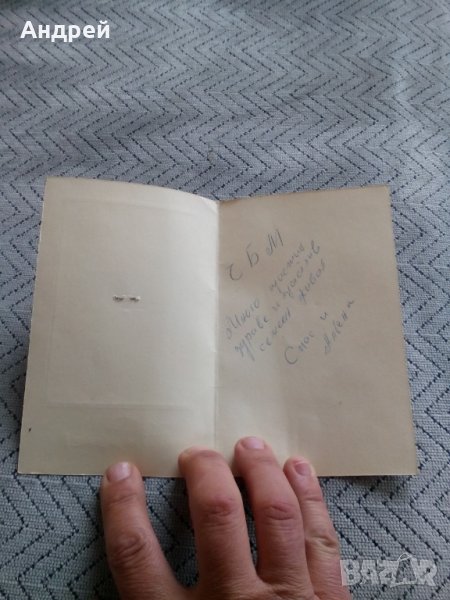 Андрей
Ч Б М
Много щастие
здраве и щастлив
семеен живот
Спас и
Албена
BAZAR